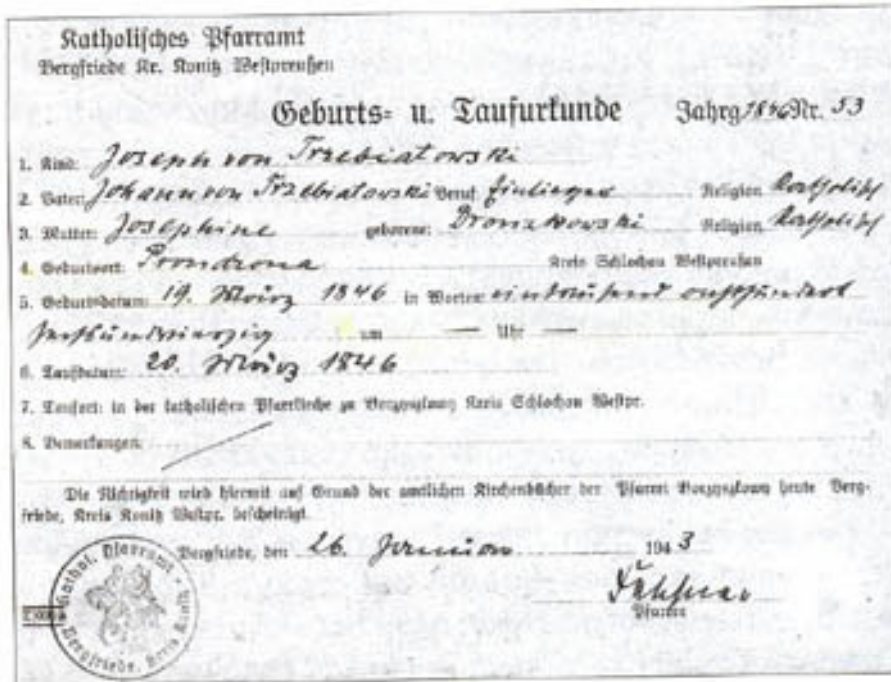 Katholisches Pfarramt
Bergfriede Kr. Konitz Westpreußen
Geburts= u. Taufurkunde Jahrg 1846 Nr. 53
1. Kind: Joseph von Trzebiatowski
2. Vater: Johann von Trzebiatowski Beruf: Einlieger Religion Katholisch
3. Mutter: Josephine geborene: Religion Katholisch
4. Geburtsort: Prondzona Kreis Schlochau Westpreußen
5. Geburtsdatum: 19. März 1846 in Worten eintausend achthundert
sechsundvierzig um — Uhr —
6. Taufdatum: 20. März 1846
7. Taufort: in der katholischen Pfarrkirche zu Borzyszkowy Kreis Schlochau Westpr.
8. Bemerkungen:
Die Richtigkeit wird hiermit auf Grund der amtlichen Kirchenbücher der Pfarrei Borzyszkowy heute Berg-
friede, Kreis Konitz Westpr. bescheinigt.
Bergfriede, den 26. Januar 1943
Pfarrer
Kathol. Pfarramt
Bergfriede, Kreis Konitz